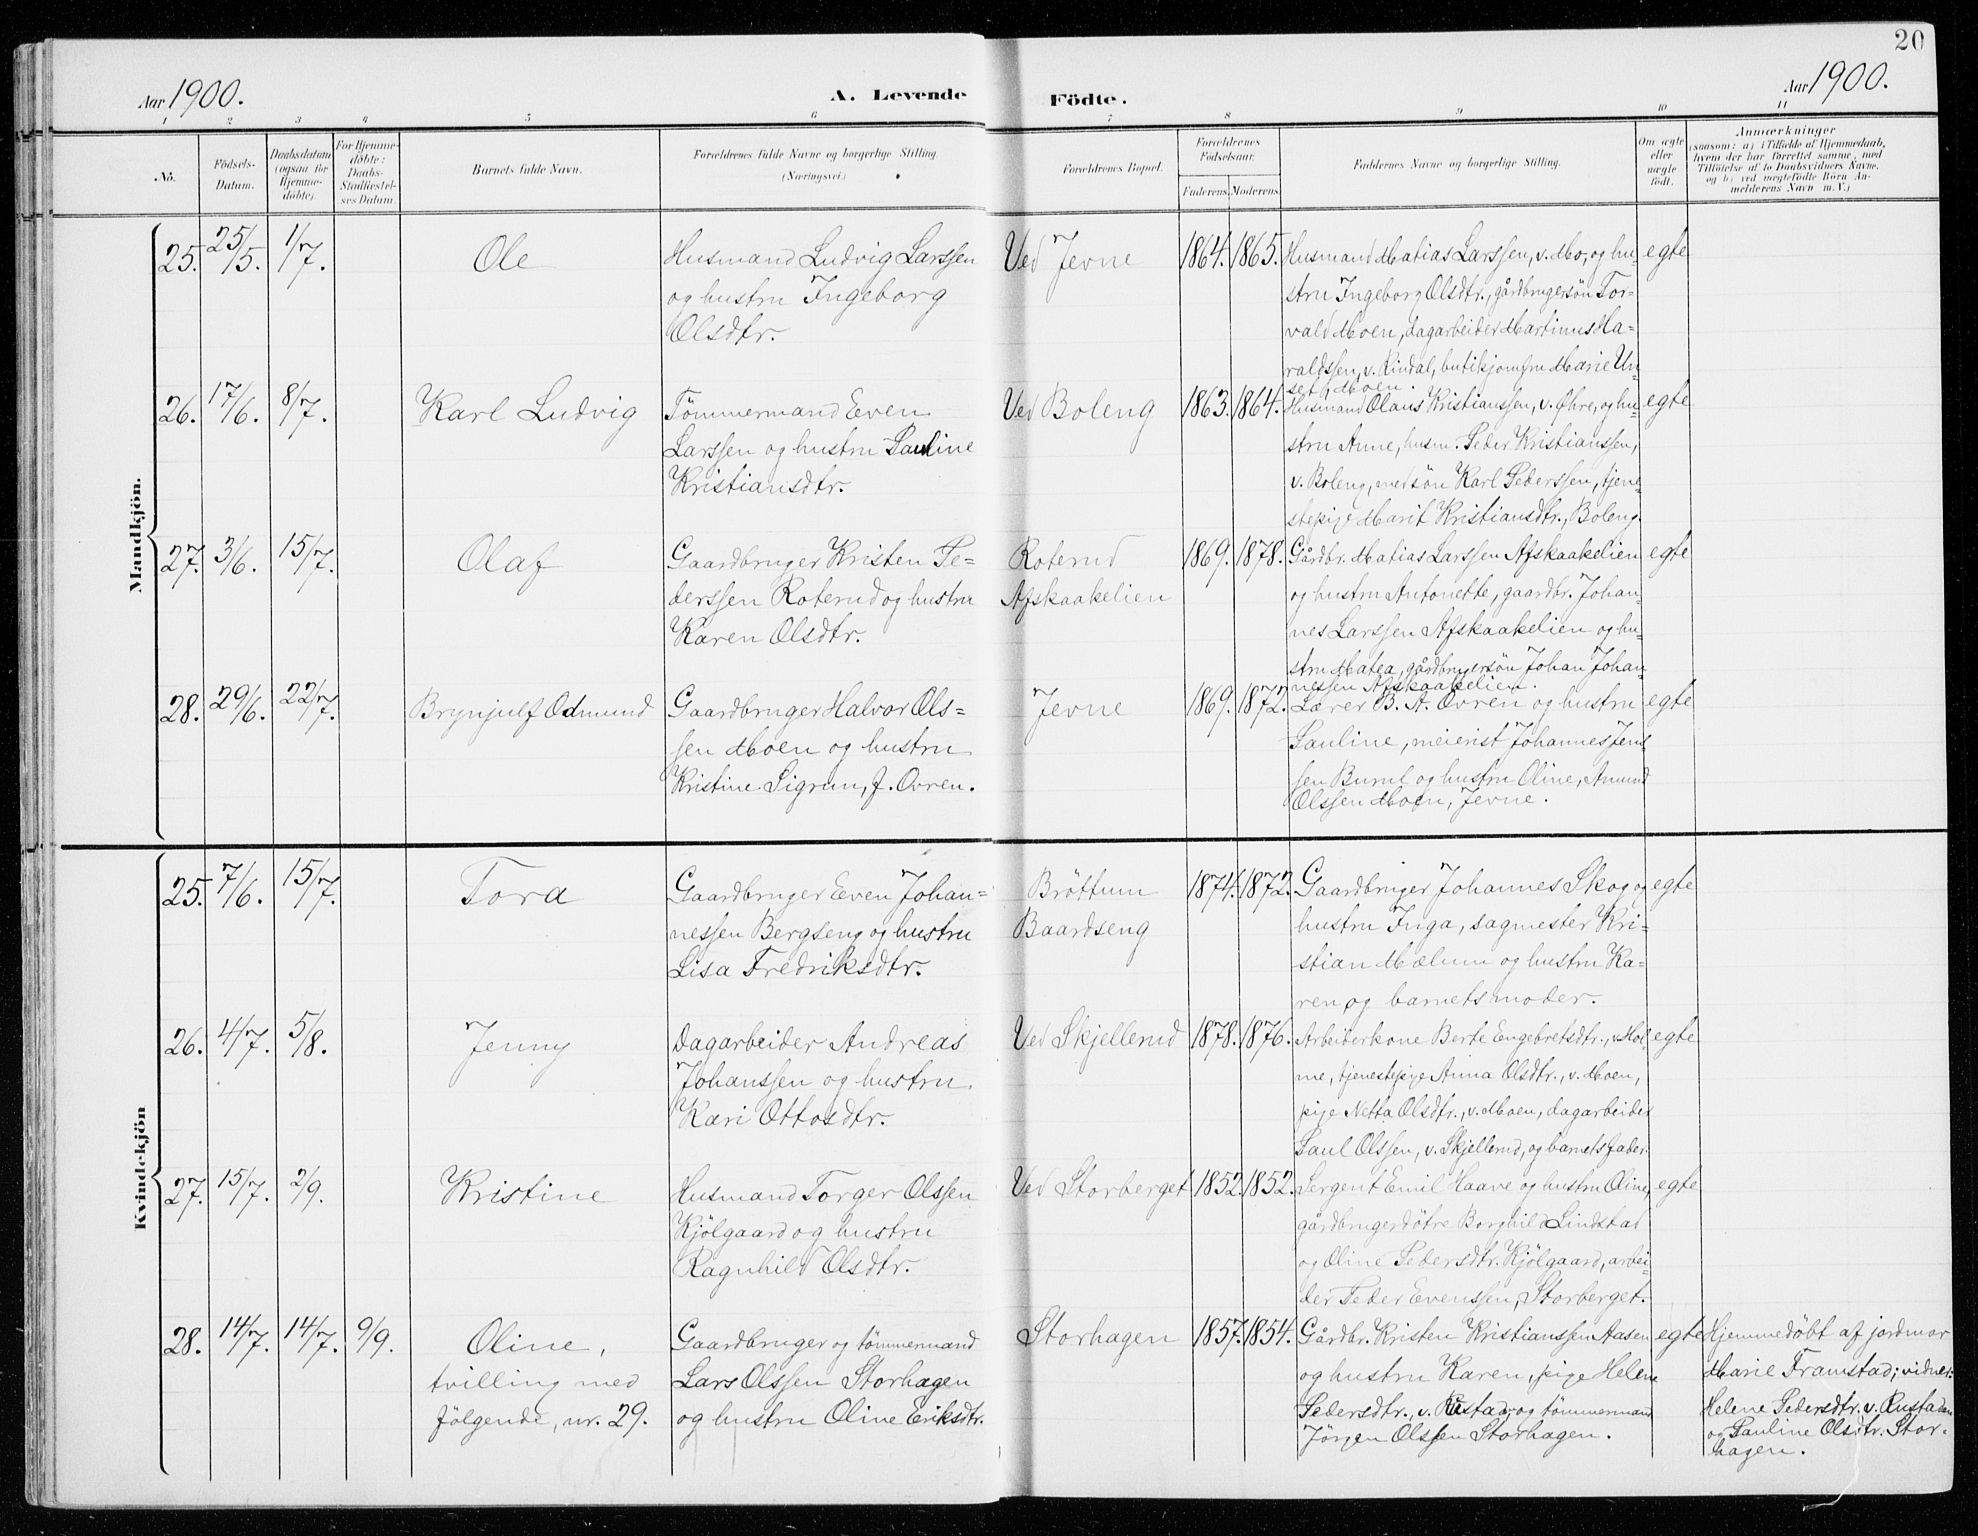 20
Aar 1900.
A. Levende
Födte.
Aar 1900.
1 2 3 4 5 6 7 8 9 10 11
No.
Födsels-
Datum.
Daabsdatum
(ogsaa for
Hjemme-
döbte).
For Hjemme-
döbte:
Daabs-
Stadfæstel-
ses Datum.
Barnets fulde Navn.
Forældrenes fulde Navne og borgerlige Stilling
(Næringsvei.)
Forældrenes Bopæl.
Forældrenes
Födselsaar.
Faderens. Moderens.
Faddernes Navne og borgerlige Stilling.
Om ægte
eller
uægte
födt.
Anmærkninger
(saasom: a) i Tilfælde af Hjemmedaab,
hvem der har forrettet samme, med
Tilföielse af to Daabsvidners Navne.
og b) ved uægtefödte Börn An-
melderens Navn m. V.)
Mandkjön.
25. 25/5. 1/7.
Ole
Husmand Ludvig Larssen
og hustru Ingeborg
Olsdtr.
Ved Jevne
1864. 1865.
Husmand Matias Larssen, v. Mo, og hu-
stru Ingeborg Olsdtr., gårdbrugersön Tor-
vald Moen, dagarbeider Martinus Ha-
raldssen, v. Rindal, butikjomfru Marie Un-
set, Moen.
egte
26. 17/6. 8/7.
Karl Ludvig
Tömmermand Even
Larssen og hustru Pauline
Kristiansdtr.
Ved Boleng
1863. 1864.
Husmand Olaus Kristianssen, v. Øhre, og hu-
stru Anne, husm. Peder Kristianssen,
v. Boleng, med sön Karl Pederssen, tjene-
stepige Marit Kristiansdtr., Boleng.
egte
27. 3/6. 15/7.
Olaf
Gaardbruger Kristen Pe-
derssen Roterud og hustru
Karen Olsdtr.
Roterud
Afskaakelien
1869. 1878.
Gårdbr. Matias Larssen Afskaakelien
og hustru Antonette, gaardbr. Johan-
nes Larssen Afskaakelien og hu-
stru Matea, gårdbrugersön Johan Johan-
nessen Afskaakelien.
egte
28. 29/6. 22/7.
Brynjulf Odmund
Gaardbruger Halvor Ols-
sen Moen og hustru
Kristine Sigrun, f. Ovren.
Jevne
1869. 1872.
Lærer B. A. Ovren og hustru
Pauline, meierist Johannes Jens-
sen Burul og hustru Oline, Amund
Olssen Moen, Jevne.
egte
Kvindekjön
25. 7/6. 15/7.
Tora
Gaardbruger Even Johan-
nessen Bergseng og hustru
Lisa Fredriksdtr.
Bröttum
Baardseng
1874. 1872.
Gaardbruger Johannes Skog og
hustru Inga, sagmester Kri-
stian Mælum og hustru Ka-
ren og barnets moder.
egte
26. 4/7. 5/8.
Jenny
Dagarbeider Andreas
Johanssen og hustru
Kari Ottosdtr.
Ved Skjellerud
1878. 1876.
Arbeiderkone Berte Engebretsdtr., v. Hol-
me, tjenestepige Anna Olsdtr., v. Moen,
pige Netta Olsdtr., v. Moen, dagarbeider
Paul Olssen, v. Skjellerud, og barnets fader.
egte
27. 15/7. 2/9.
Kristine
Husmand Torger Olssen
Kjölgaard og hustru
Ragnhild Olsdtr.
Ved Storberget
1852. 1852.
Sergent Emil Haave og hustru Oline,
gårdbrugerdötre Borghild Lindstad
og Oline Pedersdtr. Kjölgaard, arbei-
der Peder Evenssen, Storberget.
egte
28. 14/7. 14/7. 9/9.
Oline,
tvilling med
fölgende, nr. 29.
Gaardbruger og tömmermand
Lars Olssen Storhagen
og hustru Oline Eriksdtr.
Storhagen
1857. 1854.
Gårdbr. Kristen Kristianssen Aasen
og hustru Karen, pige Helene
Pedersdtr., v. Rustad, og tömmermand
Jörgen Olssen Storhagen.
egte
Hjemmedöbt af jordmor
Marie Framstad; vidner:
Helene Pedersdtr. v. Rustad
og Pauline Olsdtr. Stor-
hagen.